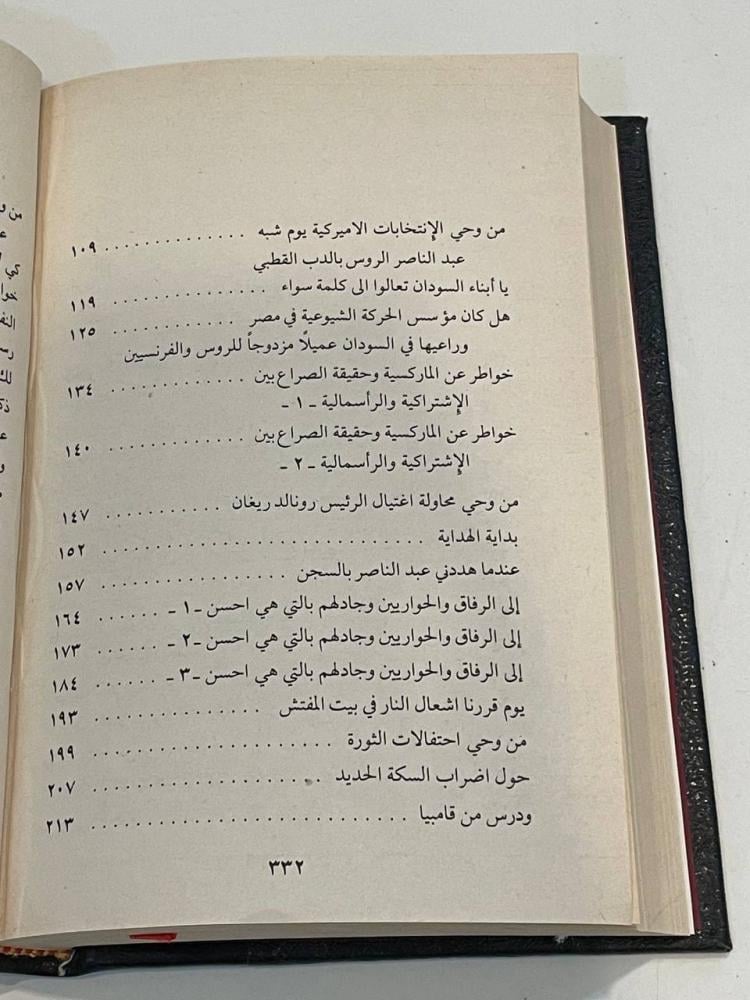 من وحي الإنتخابات الاميركية يوم شبه . . . . . . . . . . . . . . . ١٠٩
عبد الناصر الروس بالدب القطبي
يا أبناء السودان تعالوا الى كلمة سواء . . . . . . . . . . . . . . . ١١٩
هل كان مؤسس الحركة الشيوعية في مصر . . . . . . . . . . . . . ١٢٥
وراعيها في السودان عميلاً مزدوجاً للروس والفرنسيين
خواطر عن الماركسية وحقيقة الصراع بين . . . . . . . . . . . . . ١٣٤
الإشتراكية والرأسمالية ـ ١ ـ
خواطر عن الماركسية وحقيقة الصراع بين . . . . . . . . . . . . . ١٤٠
الإشتراكية والرأسمالية ـ ٢ ـ
من وحي محاولة اغتيال الرئيس رونالد ريغان . . . . . . . . . . . ١٤٧
بداية الهداية . . . . . . . . . . . . . . . . . . . . . . . . . . . . . ١٥٢
عندما هددني عبد الناصر بالسجن . . . . . . . . . . . . . . . . . ١٥٧
إلى الرفاق والحواريين وجادلهم بالتي هي احسن ـ ١ ـ . . . . . . ١٦٤
إلى الرفاق والحواريين وجادلهم بالتي هي احسن ـ ٢ ـ . . . . . . ١٧٣
إلى الرفاق والحواريين وجادلهم بالتي هي احسن ـ ٣ ـ . . . . . . ١٨٤
يوم قررنا اشعال النار في بيت المفتش . . . . . . . . . . . . . . . ١٩٣
من وحي احتفالات الثورة . . . . . . . . . . . . . . . . . . . . . ١٩٩
حول اضراب السكة الحديد . . . . . . . . . . . . . . . . . . . . ٢٠٧
ودرس من قامبيا . . . . . . . . . . . . . . . . . . . . . . . . . . . ٢١٣
٣٣٢